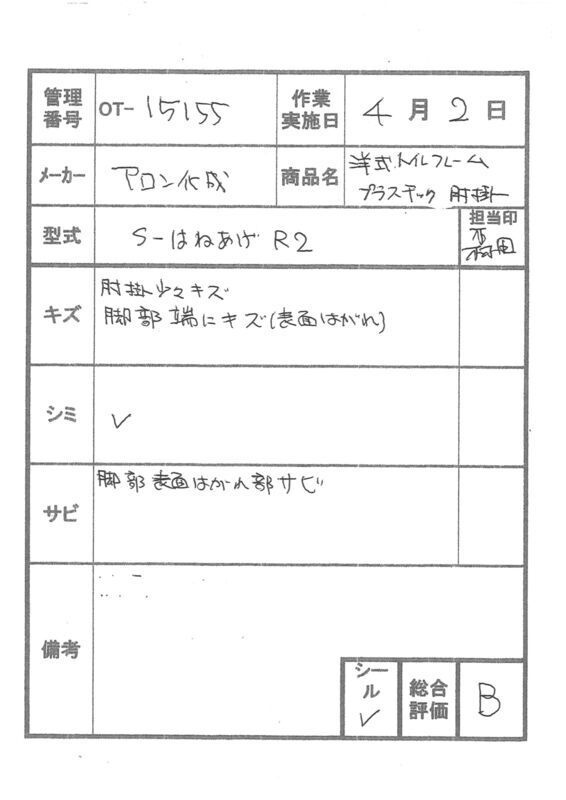 管理番号 OT-15155 作業実施日 4月2日
メーカー アロン化成 商品名 洋式トイレフレーム
プラスチック 肘掛け
型式 S-はねあげ R2 担当印
キズ 肘掛少々キズ
脚部端にキズ(表面はがれ)
シミ ✓
サビ 脚部表面はがれ部サビ
備考
シール ✓ 総合評価 B